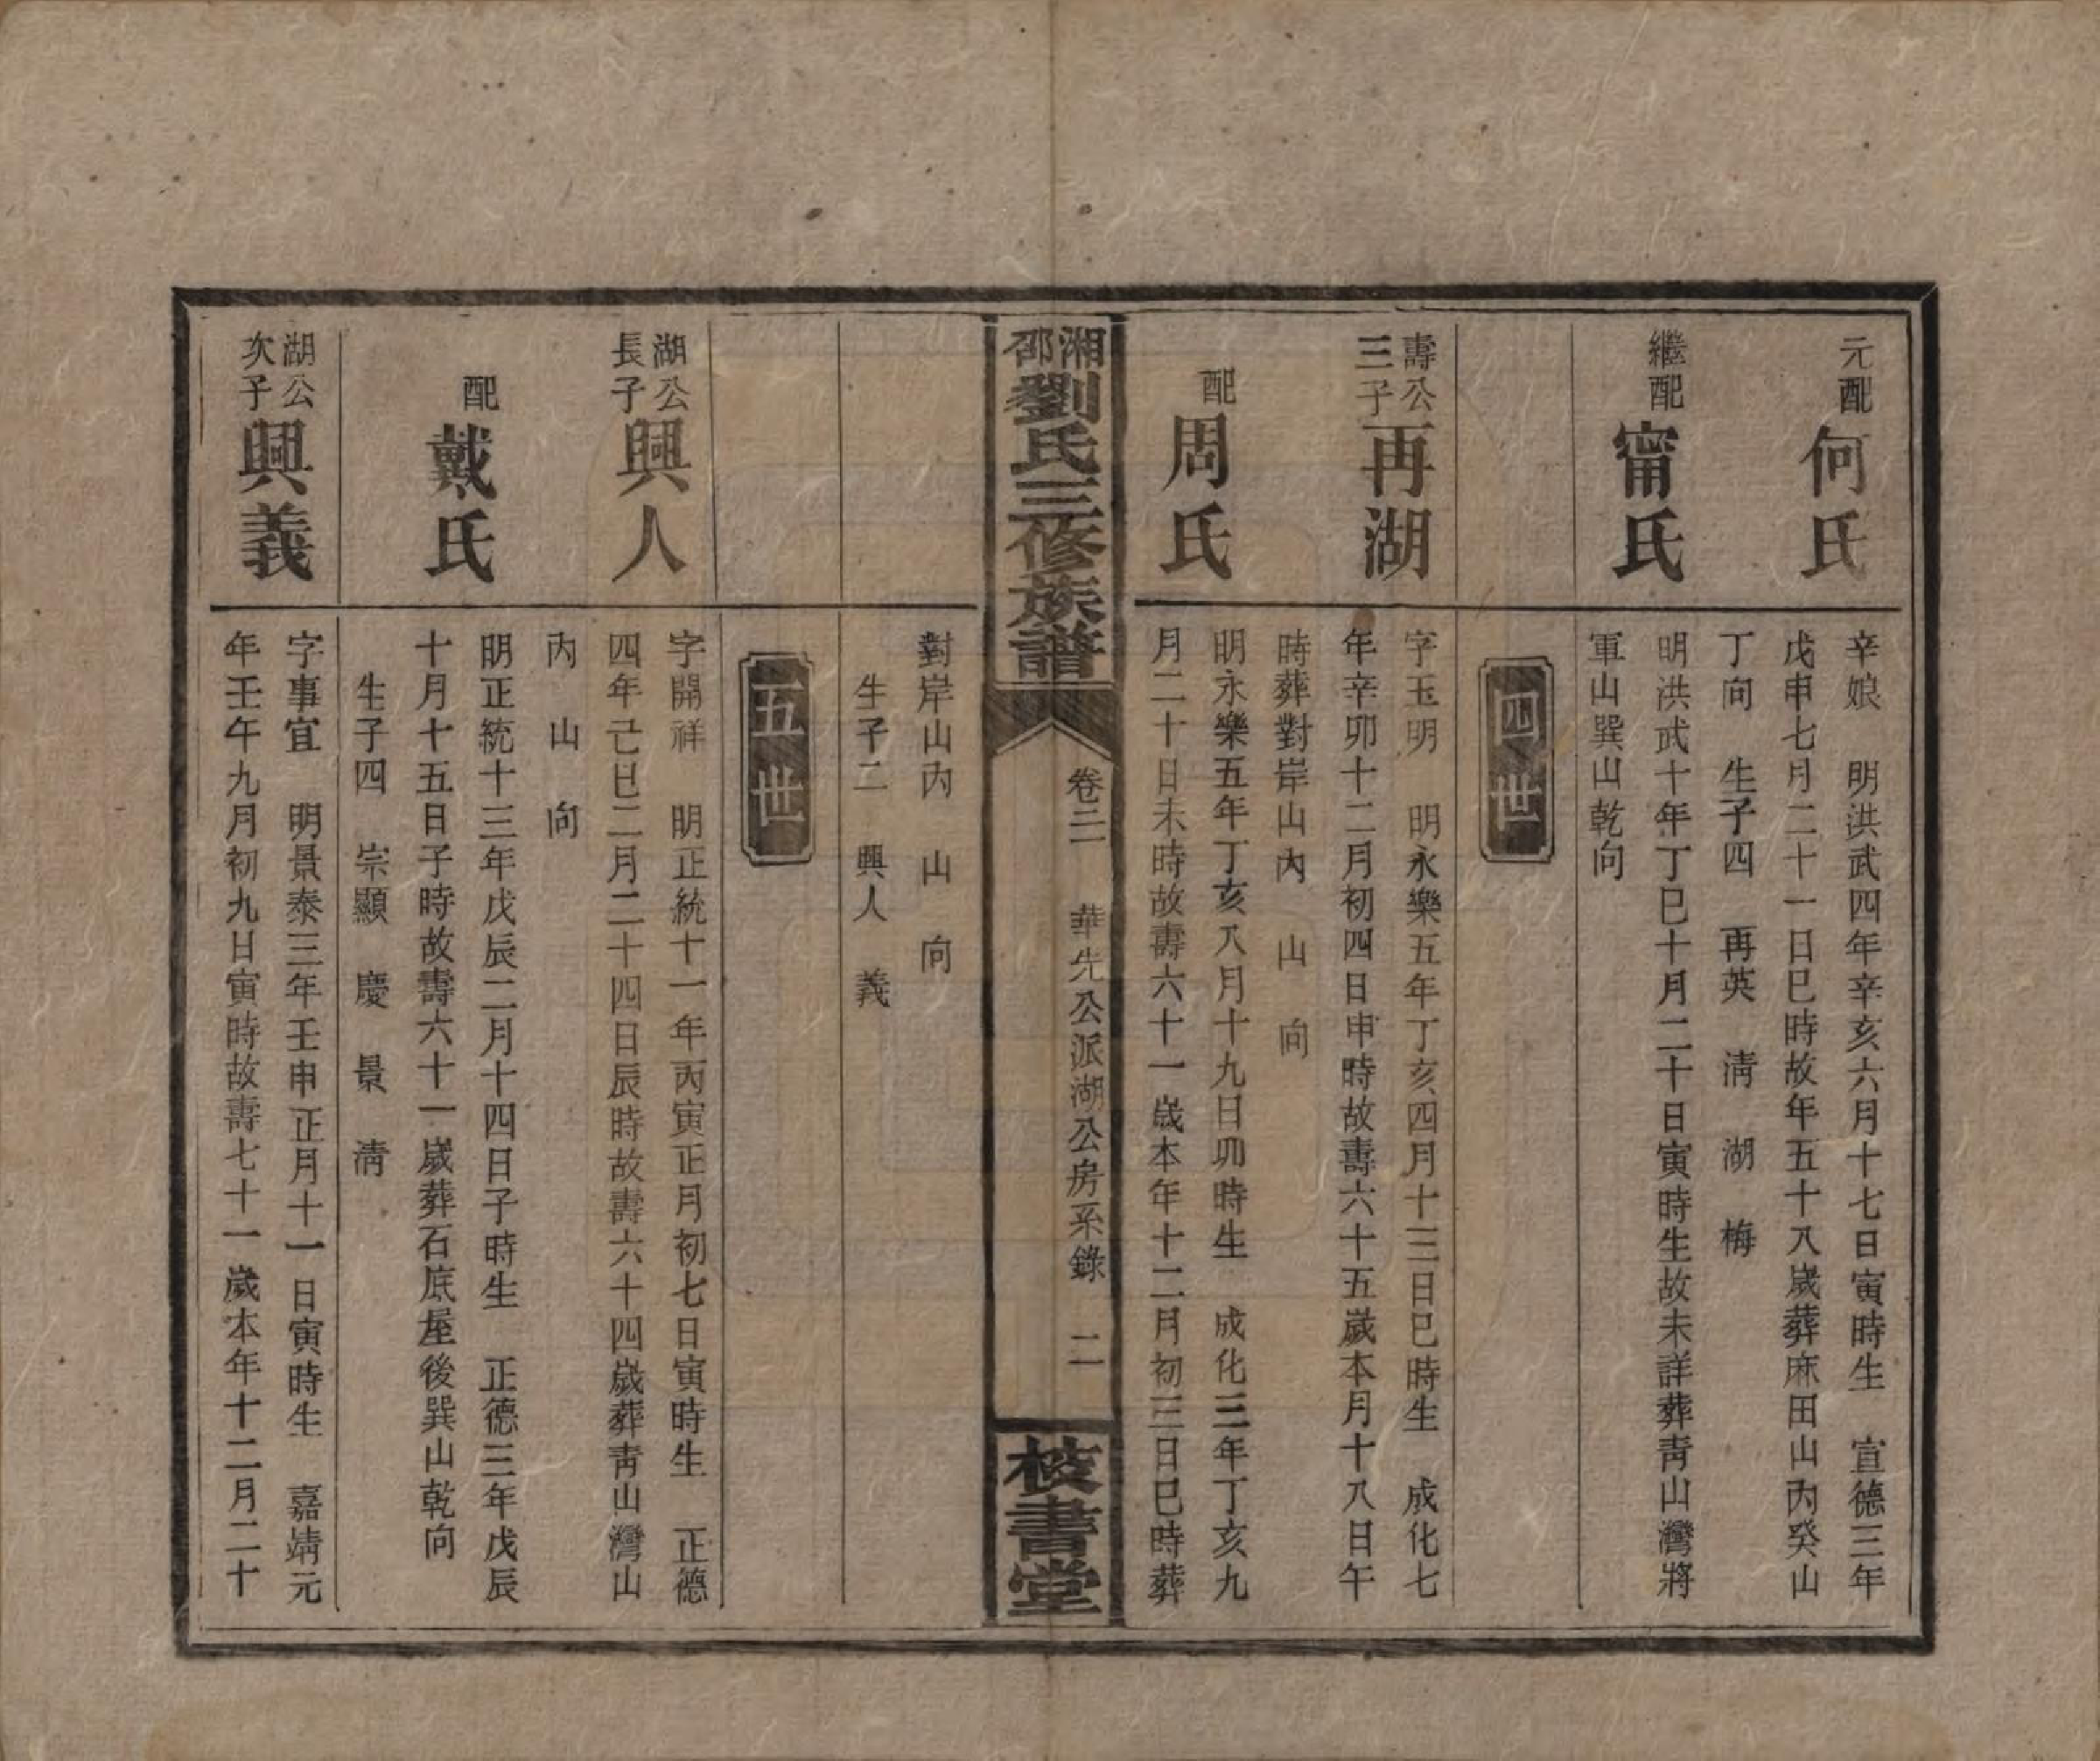 元配何氏
辛娘　明洪武四年辛亥六月十七日寅時生　宣德三年
戊申七月二十一日巳時故年五十八歲葬麻田山內癸山
丁向　生子四　再英　清　湖　梅
繼配甯氏
明洪武十年丁巳十月二十日寅時生故未詳葬青山灣將
軍山巽山乾向
四世
壽公三子再湖
字玉明　明永樂五年丁亥四月十三日巳時生　成化七
年辛卯十二月初四日申時故壽六十五歲本月十八日午
時葬對岸山內　山　向
配周氏
明永樂五年丁亥八月十九日卯時生　成化三年丁亥九
月二十日未時故壽六十一歲本年十二月初三日巳時葬
湘邵劉氏三修族譜
卷二　華先公派湖公房系錄　二
校書堂
對岸山內　山　向
生子二　興人　義
五世
湖公長子興人
字開祥　明正統十一年丙寅正月初七日寅時生　正德
四年己巳二月二十四日辰時故壽六十四歲葬青山灣山
內　山　向
配戴氏
明正統十三年戊辰二月十四日子時生　正德三年戊辰
十月十五日子時故壽六十一歲葬石底屋後巽山乾向
生子四　宗顯　慶　景　清
湖公次子興義
字事宜　明景泰三年壬申正月十一日寅時生　嘉靖元
年壬午九月初九日寅時故壽七十一歲本年十二月二十